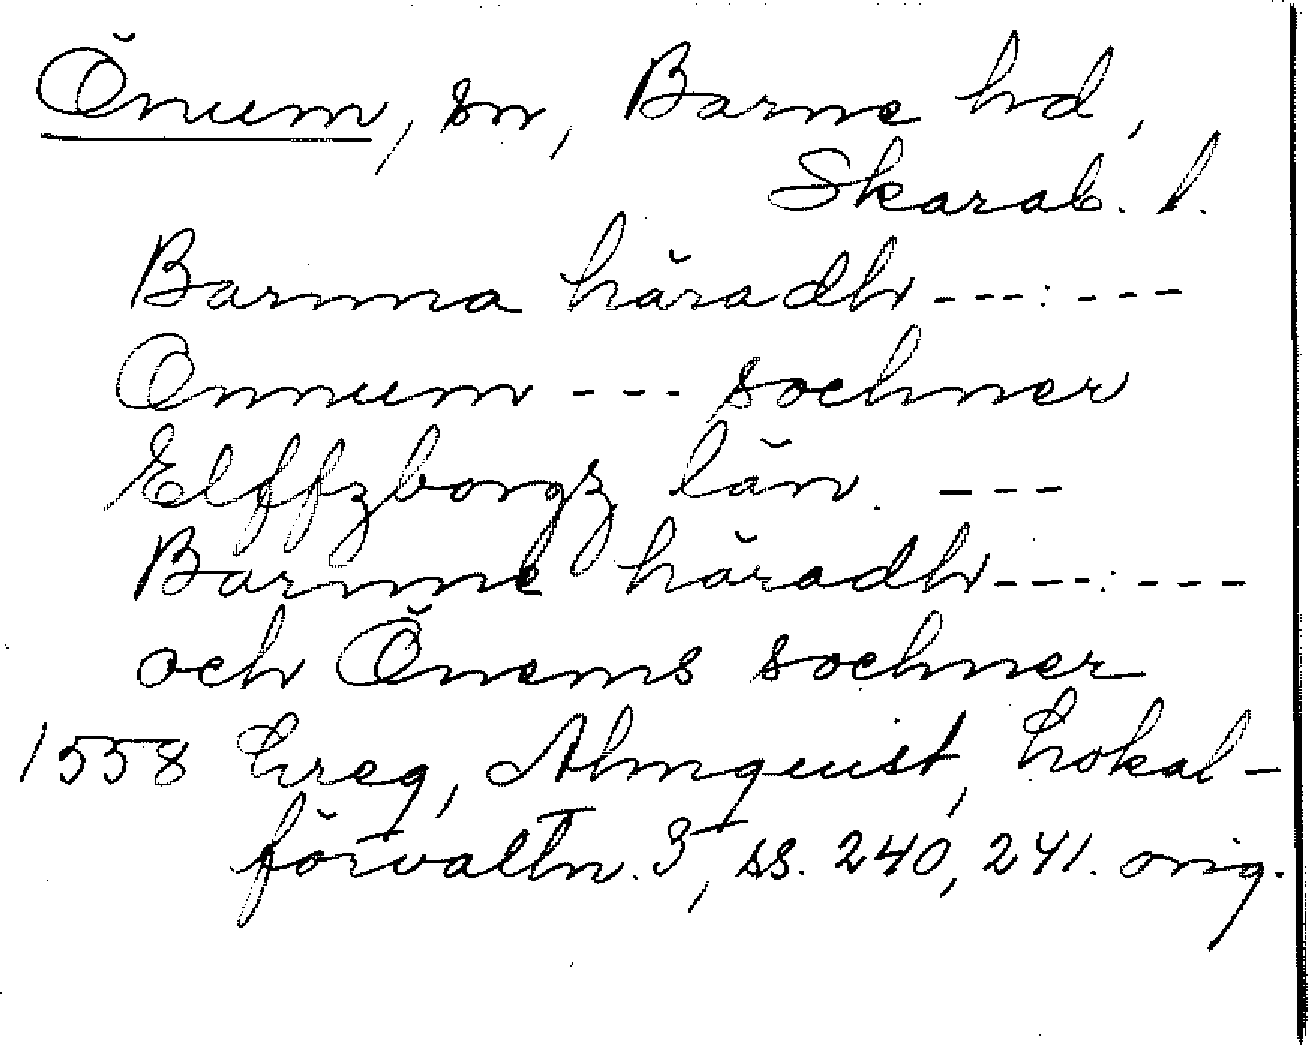 Önum, sn, Barne hd,
Skarab. l.
Barnna häradh ---:---
Onnum --- sochner
Elffzborgz län. ---
Barnne häradh---:---
och Önems sochner
1558 Lreg, Almquist, Lokal-
förvaltn. 3, ss. 240, 241. orig.